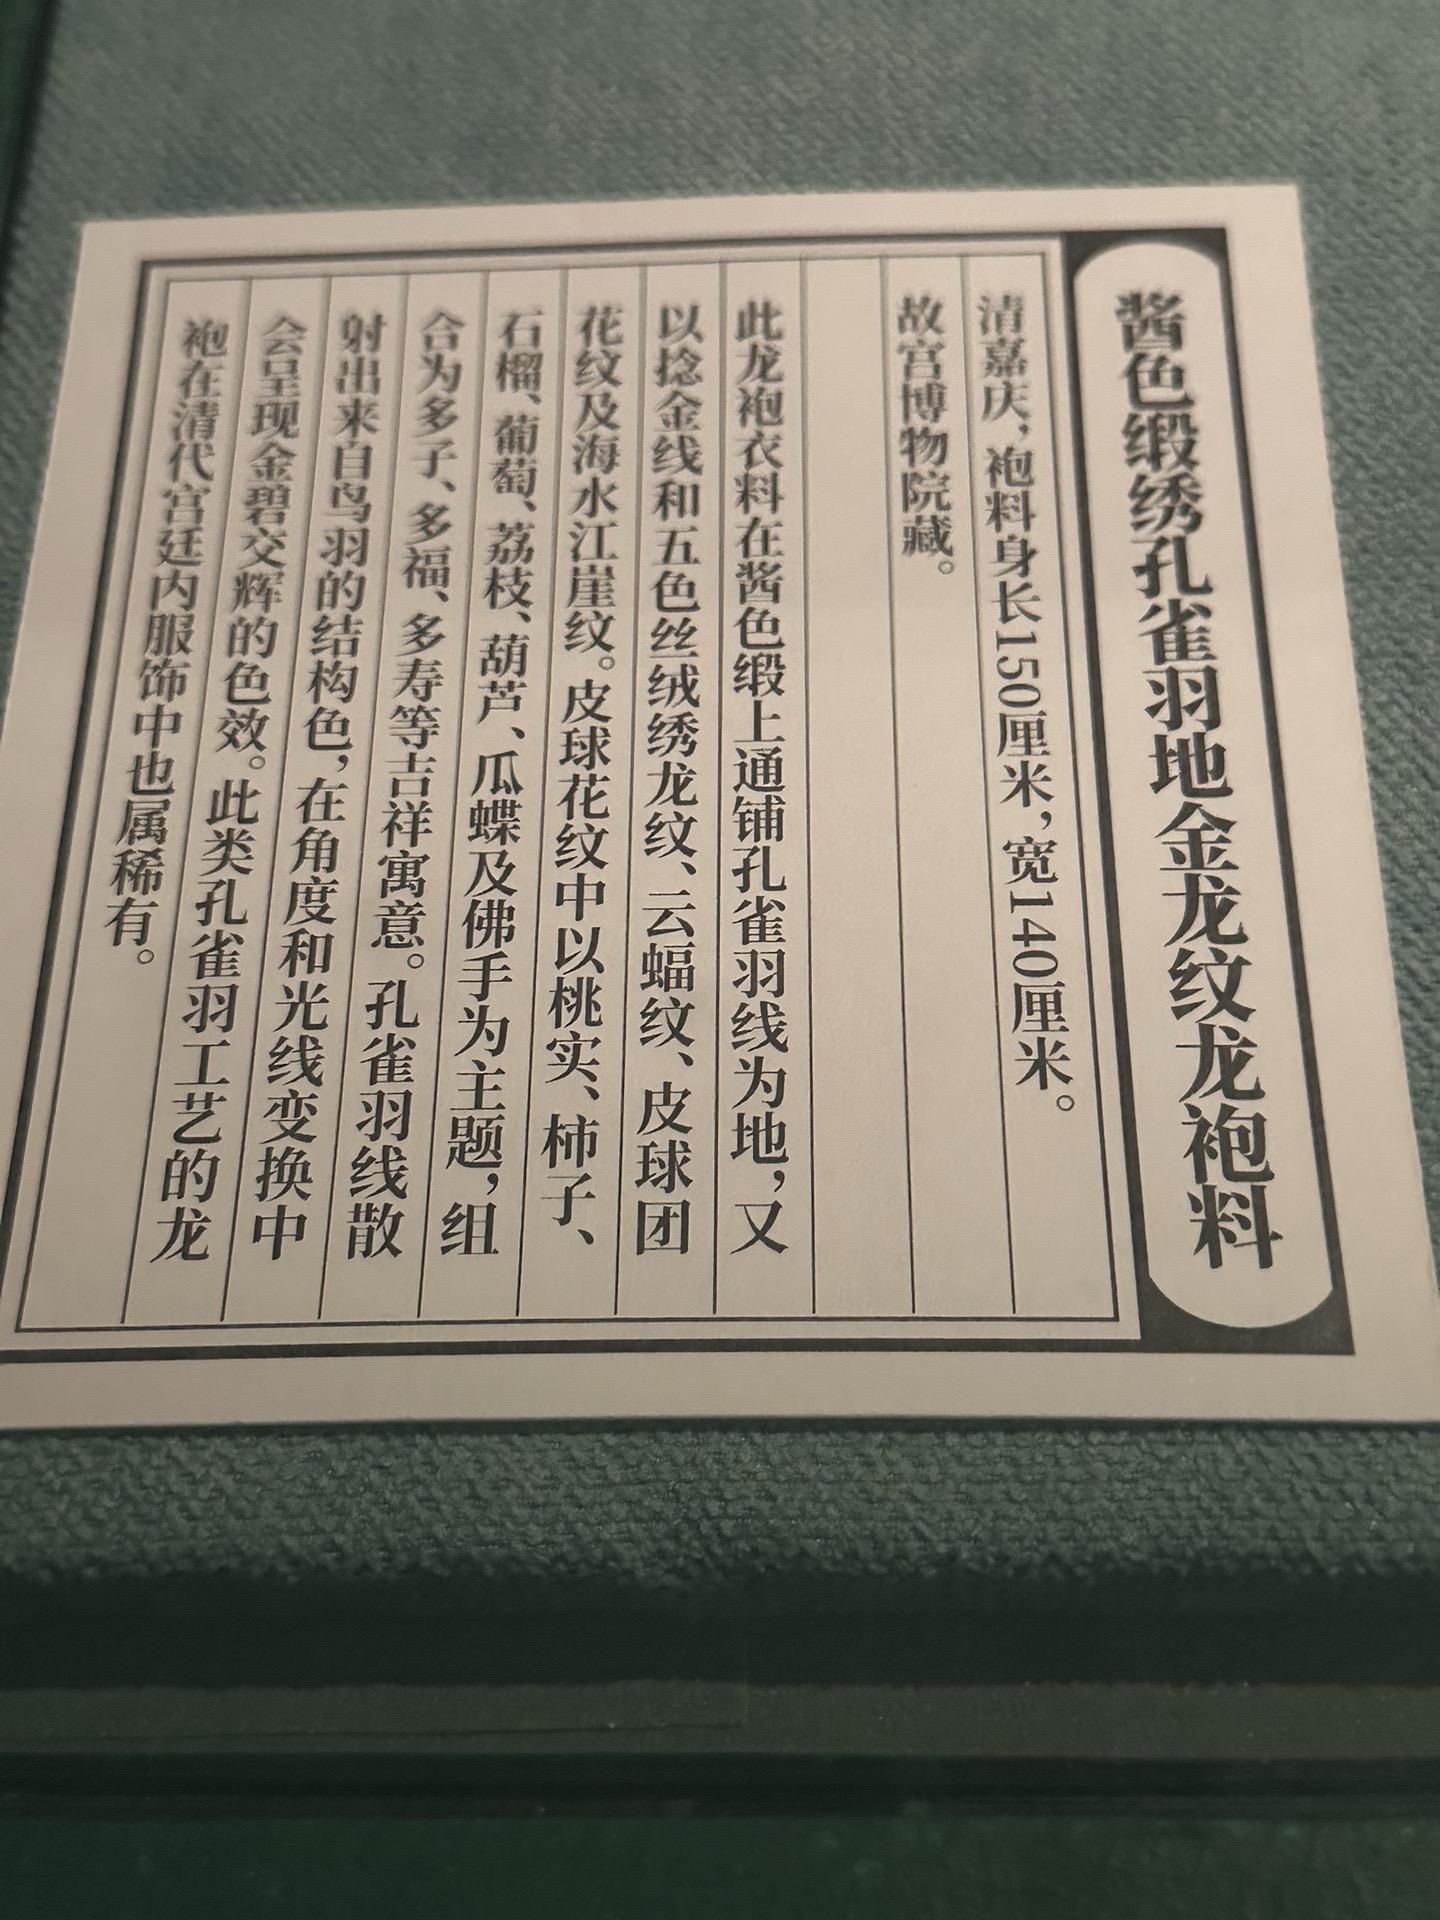 酱色缎绣孔雀羽地金龙纹龙袍料
清嘉庆，袍料身长150厘米，宽140厘米。
故宫博物院藏。
此龙袍衣料在酱色缎上通铺孔雀羽线为地，又
以捻金线和五色丝绒绣龙纹、云蝠纹、皮球团
花纹及海水江崖纹。皮球花纹中以桃实、柿子、
石榴、葡萄、荔枝、葫芦、瓜蝶及佛手为主题，组
合为多子、多福、多寿等吉祥寓意。孔雀羽线散
射出来自鸟羽的结构色，在角度和光线变换中
会呈现金碧交辉的色效。此类孔雀羽工艺的龙
袍在清代宫廷内服饰中也属稀有。